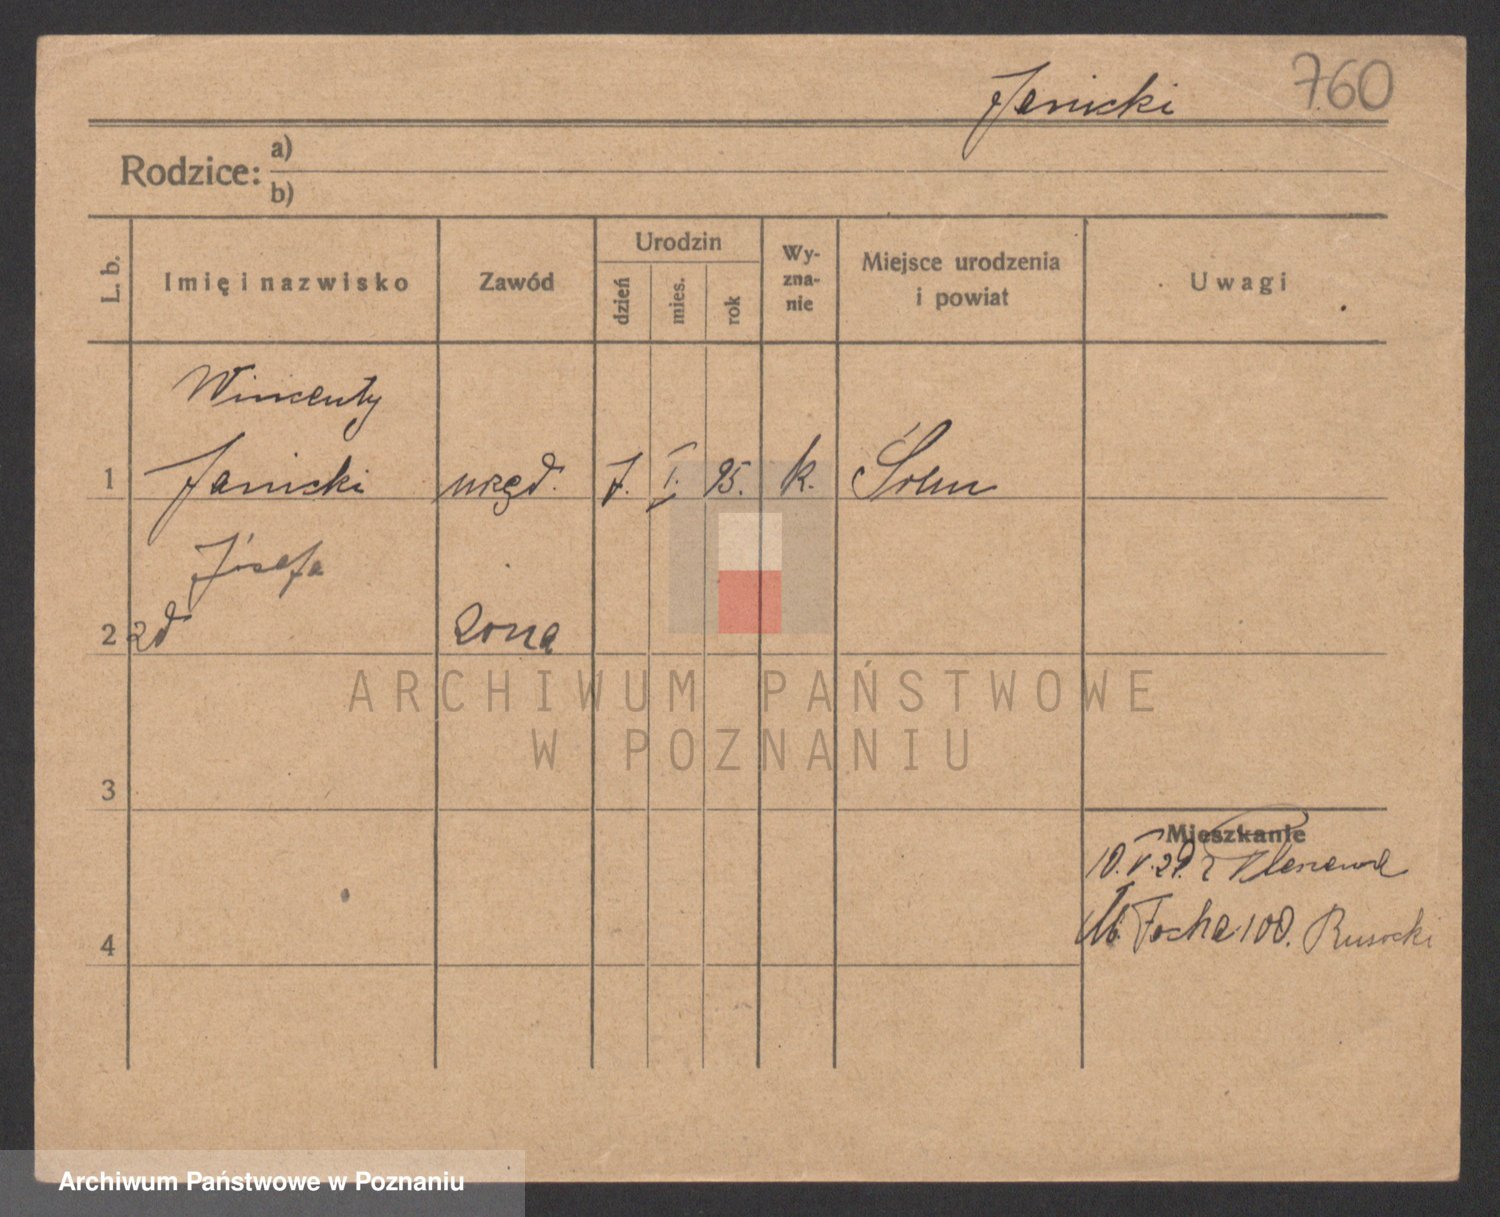 Janicki 760
Rodzice: a)
b)
L. b. Imię i nazwisko Zawód Urodzin dzień mies. rok Wy-zna-nie Miejsce urodzenia i powiat Uwagi
Wincenty
1 Janicki urzęd. 7. I. 95. k. Śrem
Józefa
2 żona
ARCHIWUM PAŃSTWOWE
W POZNANIU
3
Mieszkanie
10.V.29. z Pleszewa
4 M. Focha 100. Rusocki
Archiwum Państwowe w Poznaniu